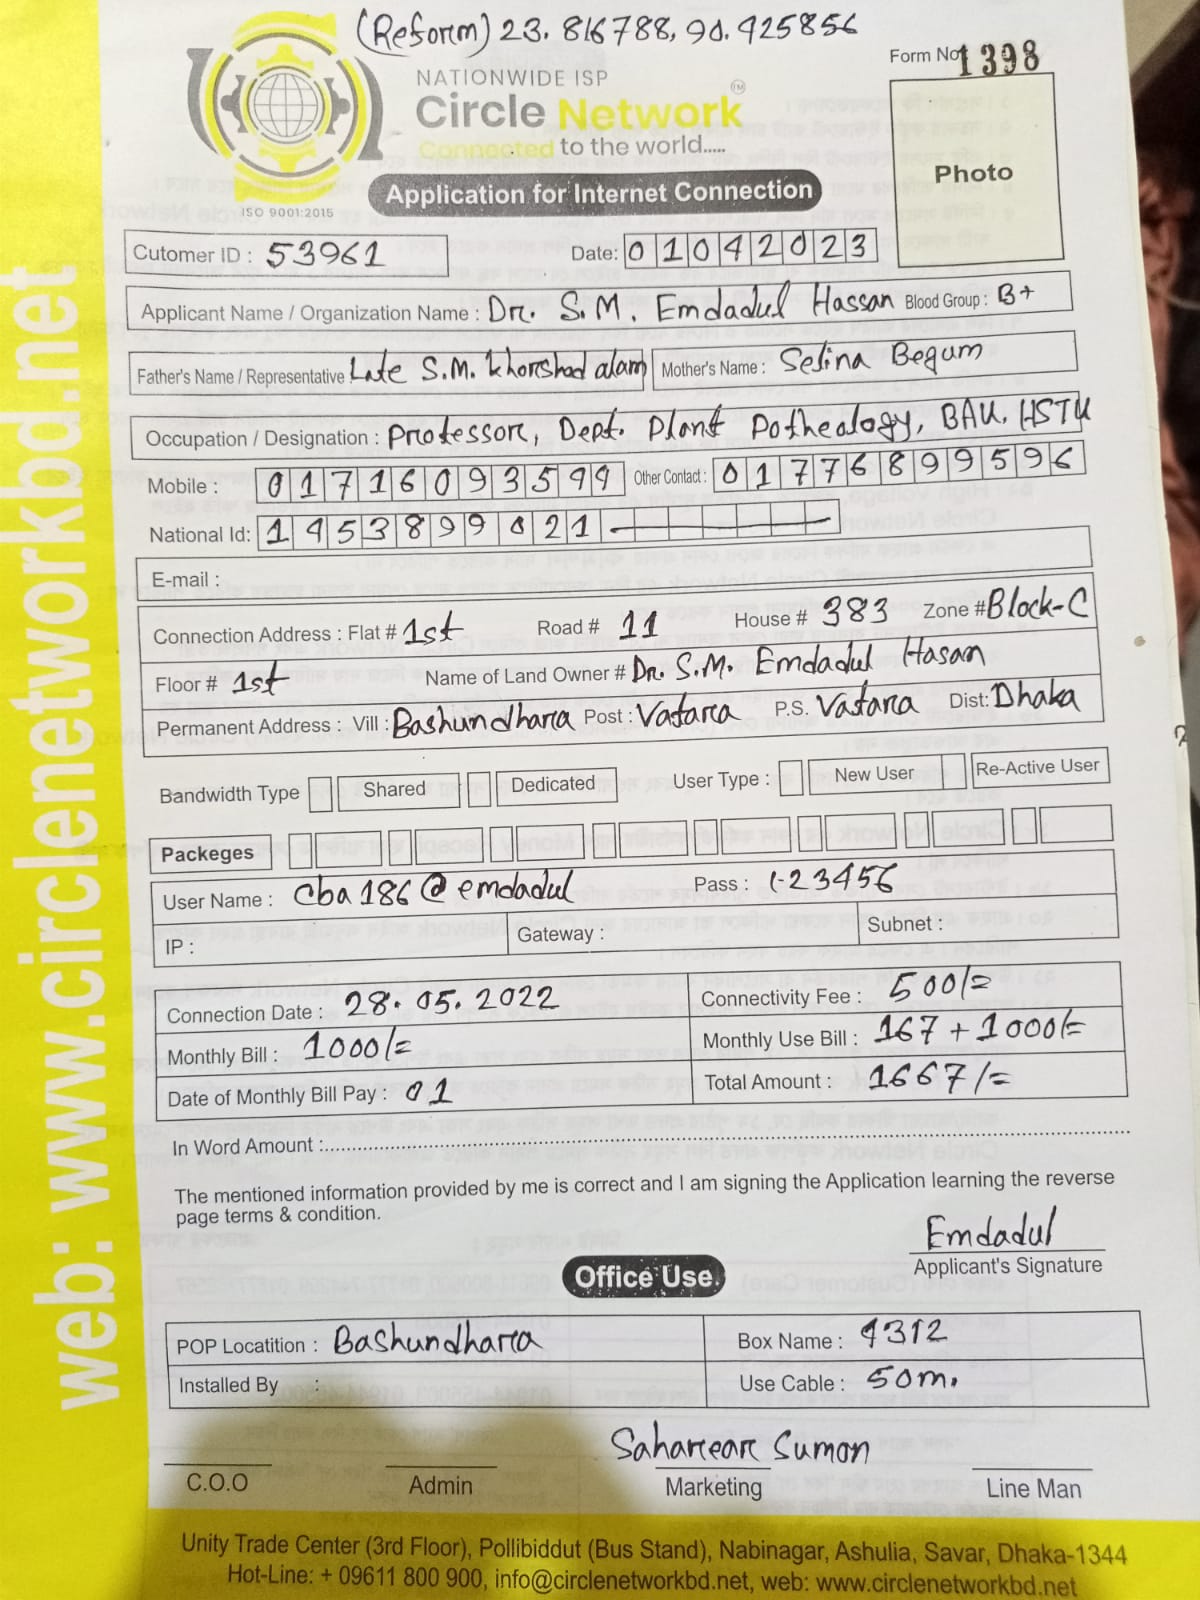 (Reform) 23.816788, 90.925856
Form No 1398
NATIONWIDE ISP
Circle Network TM
Connected to the world.....
Photo
Application for Internet Connection
ISO 9001:2015
Cutomer ID : 53961 Date: 01042023
Applicant Name / Organization Name : Dr. S.M. Emdadul Hassan Blood Group : B+
Father's Name / Representative Late S.M. khorshad alam Mother's Name : Selina Begum
Occupation / Designation : Professor, Dept. Plant Pothealogy, BAU. HSTU
Mobile : 01716093599 Other Contact : 01776899596
National Id: 1953899021
E-mail :
Connection Address : Flat # 1st Road # 11 House # 383 Zone # Block-C
Floor # 1st Name of Land Owner # Dr. S.M. Emdadul Hasan
Permanent Address : Vill : Bashundhara Post : Vatara P.S. Vatara Dist: Dhaka
Bandwidth Type Shared Dedicated User Type : New User Re-Active User
Packeges
User Name : Cba186@emdadul Pass : 123456
IP : Gateway : Subnet :
Connection Date : 28.05.2022 Connectivity Fee : 500/=
Monthly Bill : 1000/= Monthly Use Bill : 167 + 1000/=
Date of Monthly Bill Pay : 01 Total Amount : 1667/=
In Word Amount :
The mentioned information provided by me is correct and I am signing the Application learning the reverse
page terms & condition.
Emdadul
Applicant's Signature
Office Use.
POP Locatition : Bashundhara Box Name : 9312
Installed By : Use Cable : 50m.
Saharear Sumon
C.O.O Admin Marketing Line Man
Unity Trade Center (3rd Floor), Pollibiddut (Bus Stand), Nabinagar, Ashulia, Savar, Dhaka-1344
Hot-Line: + 09611 800 900, info@circlenetworkbd.net, web: www.circlenetworkbd.net
web: www.circlenetworkbd.net